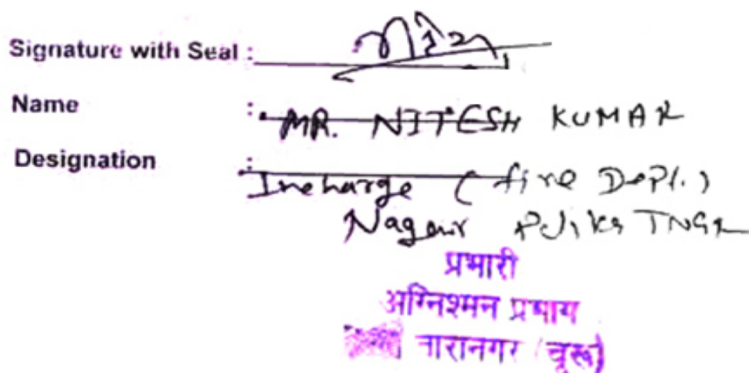 Signature with Seal :
Name : MR. NITESH KUMAR
Designation : Incharge ( fire Deptt.)
Nagar Palika TNGR
प्रभारी
अग्निश्मन प्रभाग
तारानगर (चूरू)